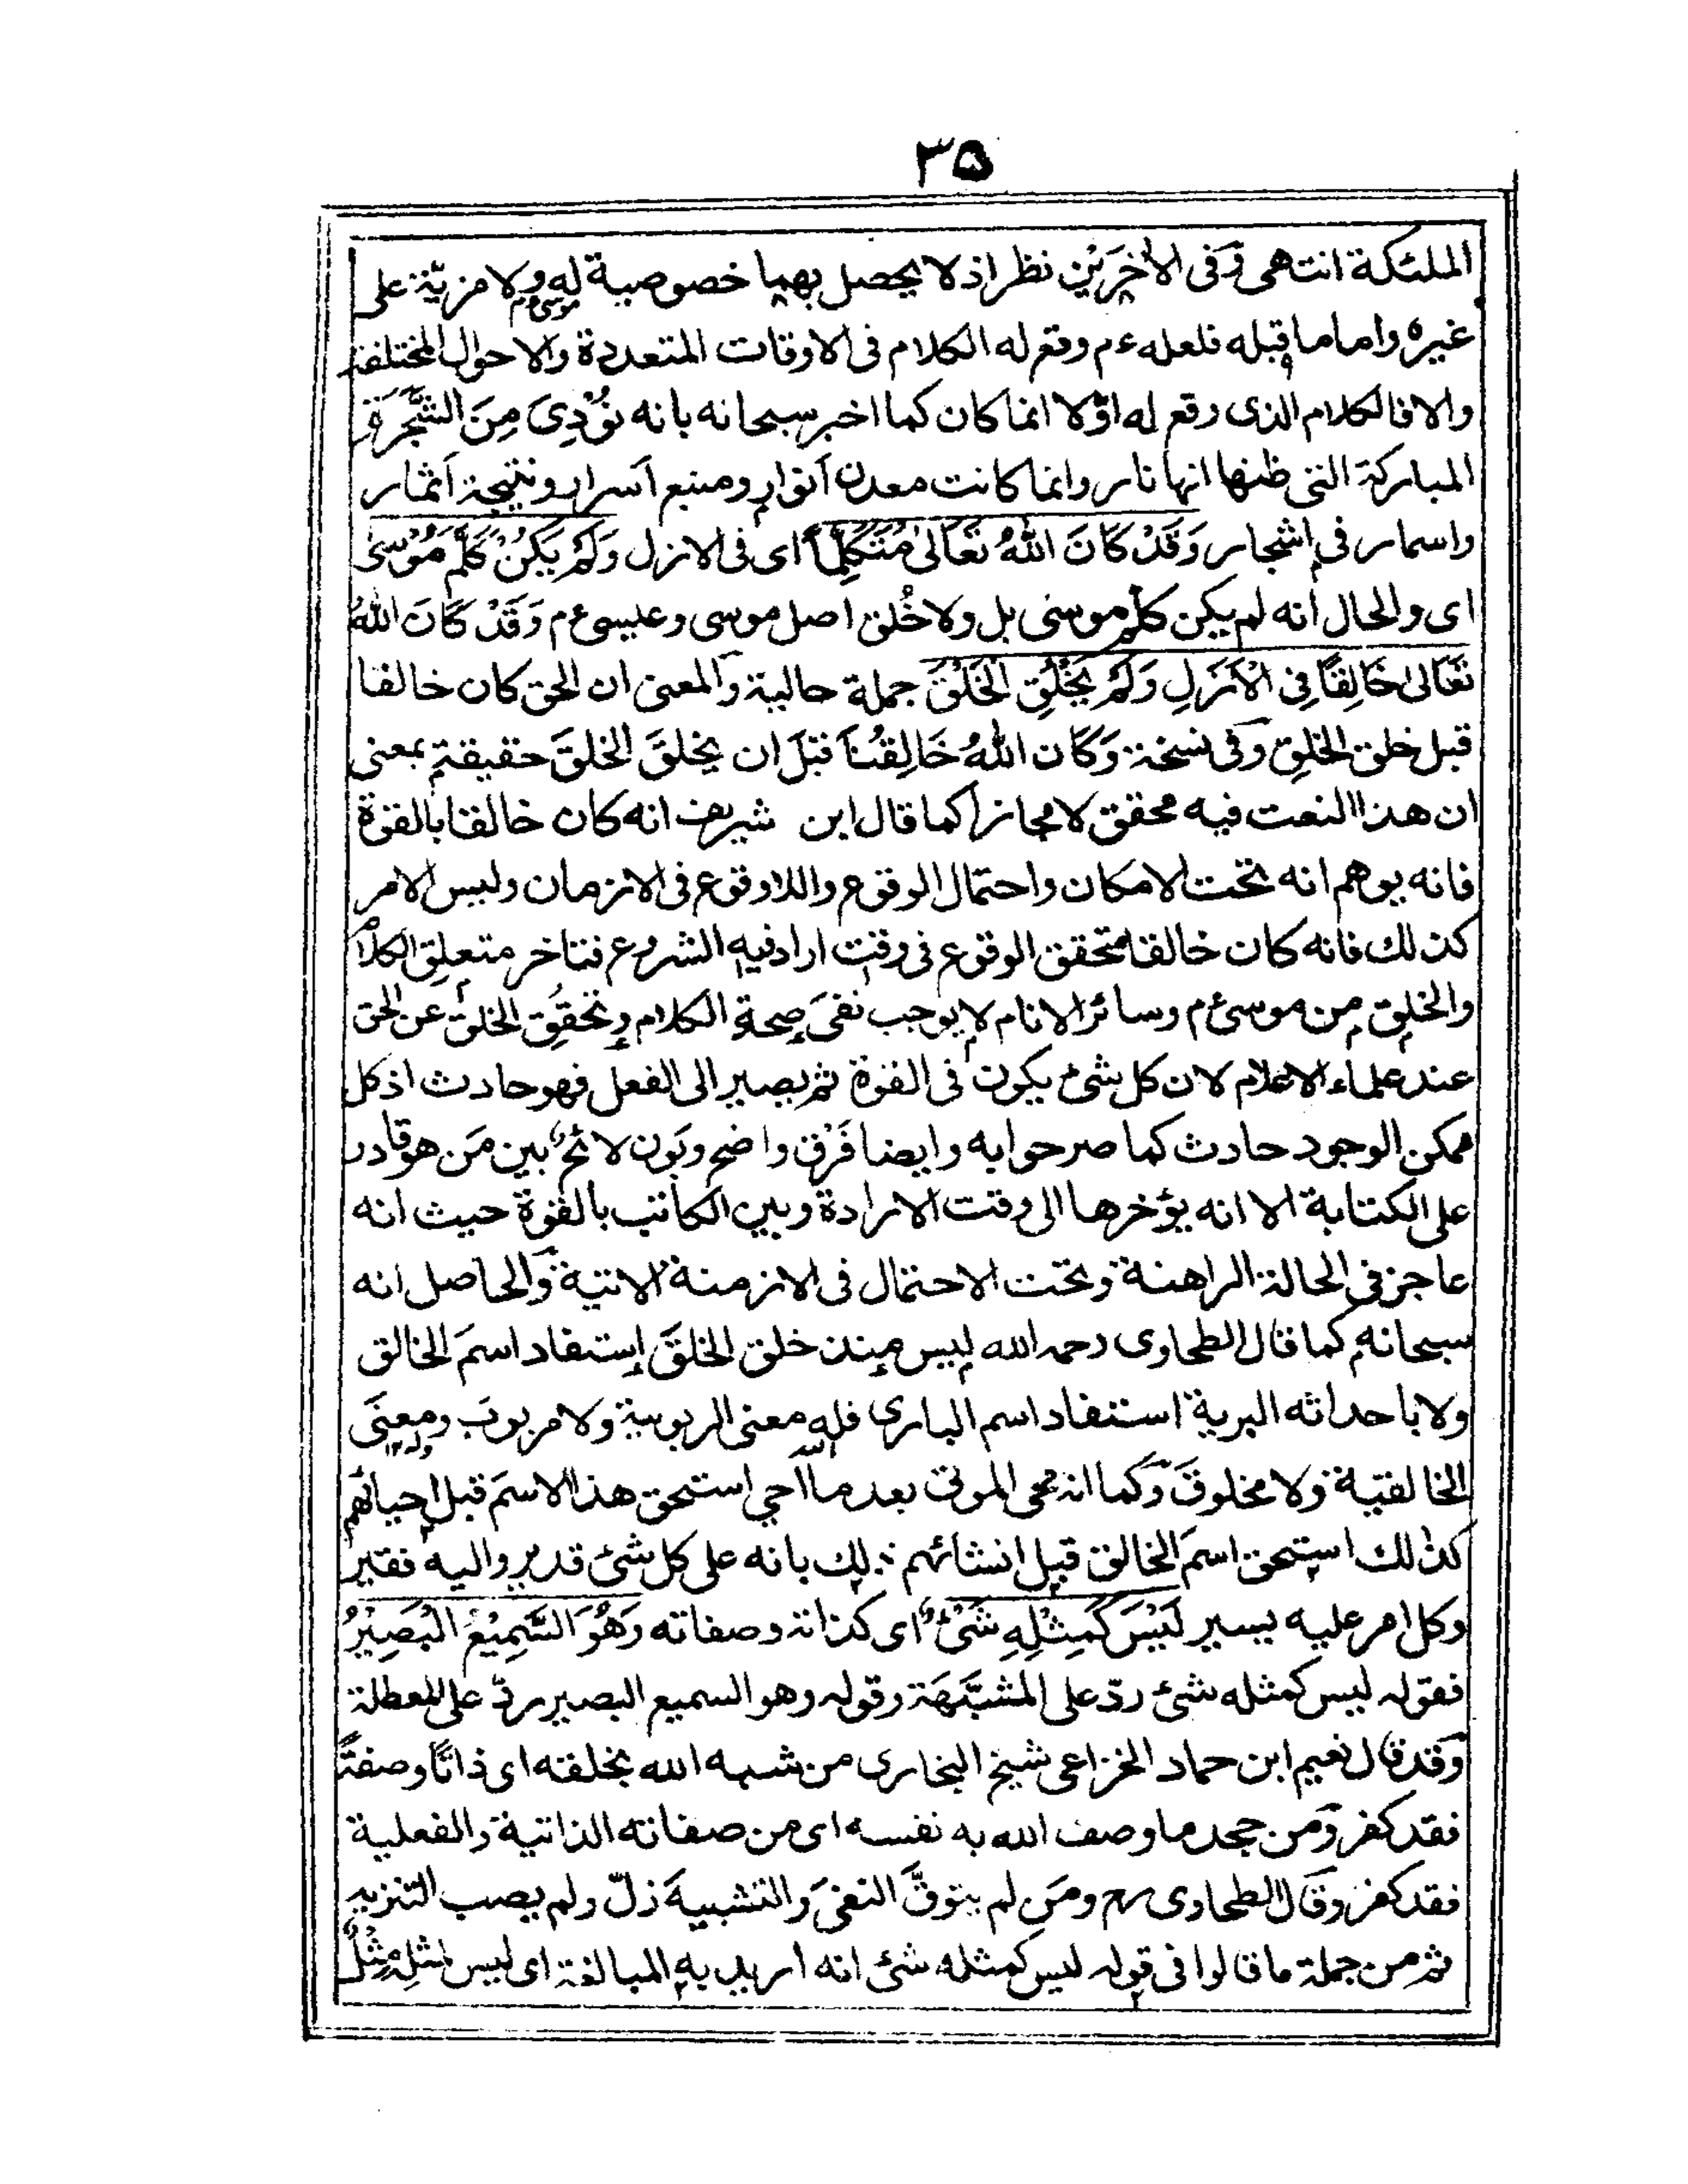 ٣۵
الملئكة انتهى وَفى الأخِرَيْن نظر اذ لا يحصل بهما خصوصية له ولا مزيّة على
موسىءم
غيره واما ما قبله فلعله ءم وقع له الكلام فى الاوقات المتعددة والاحوال المختلفة
والا فالكلام الذى وقع له اوّلا انما كان كما اخبر سبحانه بانه نُوْدِىَ مِنَ الشَّجَرَةِ
المباركة التى ظنها انها نار وانما كانت معدن اَنوار ومنبع اَسرار ونتيجة اَثمار
واسمار فى اشجار وَقَدْ كَانَ اللهُ تَعَالىٰ مُتَكَلِّمًا اى فى الازل وَلَمْ يَكُنْ كَلَّمَ مُوْسىٰ
اى والحال انه لم يكن كلّم موسى بل ولا خُلق اصل موسى وعيسىءم وَقَدْ كَانَ اللهُ
تَعَالىٰ خَالِقًا فِى الْاَزَلِ وَلَمْ يَخْلُقِ الْخَلْقَ جملة حالية والمعنى ان الحق كان خالقا
قبل خلق الخلقِ وفى نسخة وَكَان اللهُ خَالِقًا قبْلَ ان يخلقَ الخلقَ حقيقة بمعنى
ان هذا النعت فيه محقق لا مجازا كما قال ابن شريف انه كان خالقا بالقوة
فانه يوهم انه تحت الامكان واحتمال الوقوع واللاوقوع فى الازمان وليس الامر
كذلك فانه كان خالقا متحقق الوقوع فى وقت اراد فيه الشروع فتاخر متعلق الكلام
والخلقِ من موسىءم وسائر الانام لا يوجب نفىَ صحة الكلام وتحقُقِ الخلق عن الحق
عند علماء الاعلام لان كل شئ يكون فى القوة ثم يصير الى الفعل فهو حادث اذ كل
ممكن الوجود حادث كما صرحوا به وايضا فَرْق واضح وبَون لائح بين مَن هو قادر
على الكتابة الا انه يؤخرها الى وقت الارادة وبين الكاتب بالقوة حيث انه
عاجز فى الحالة الراهنة وتحت الاحتمال فى الازمنة الاتية والحاصل انه
سبحانه كما قال الطحاوى رحمه الله ليس منذ خلق الخلقَ اِستفاد اسمَ الخالق
ولا باحداثه البرية استفاد اسم البارى فله معنى الربوبية ولا مربوبَ ومعنَى
الله وله ١٢
الخالقية ولا مخلوقَ وكما انه محى الموتى بعد ما احى استحق هذا الاسمَ قبل احيائهم
كذلك استحق اسمَ الخالق قبل انشائهم ذلك بانه على كل شئ قدير واليه فقير
وكل امر عليه يسير لَيْسَ كَمِثْلِهِ شَئٌْ اى كذاته وصفاته وَهُوَ السَّمِيْعُ الْبَصِيْرُ
فقوله ليس كمثله شئ ردّ على المشبَّهَة وقوله وهو السميع البصير ردّ على المعطلة
وَقد قال نعيم ابن حماد الخزاعى شيخ البخارى من شبه الله بخلقه اى ذاتًا وصفتًا
فقد كفر وَمن جحد ما وصف الله به نفسه اى من صفاته الذاتية والفعلية
فقد كفر وقال الطحاوى رح ومَن لم يتوقَّ النفىَ والتشبيهَ زلّ ولم يصب التنزيه
ثم من جملة ما قالوا فى قوله ليس كمثله شئ انه اريد به المبالغة اى ليس لمثلِه مِثْلٌ